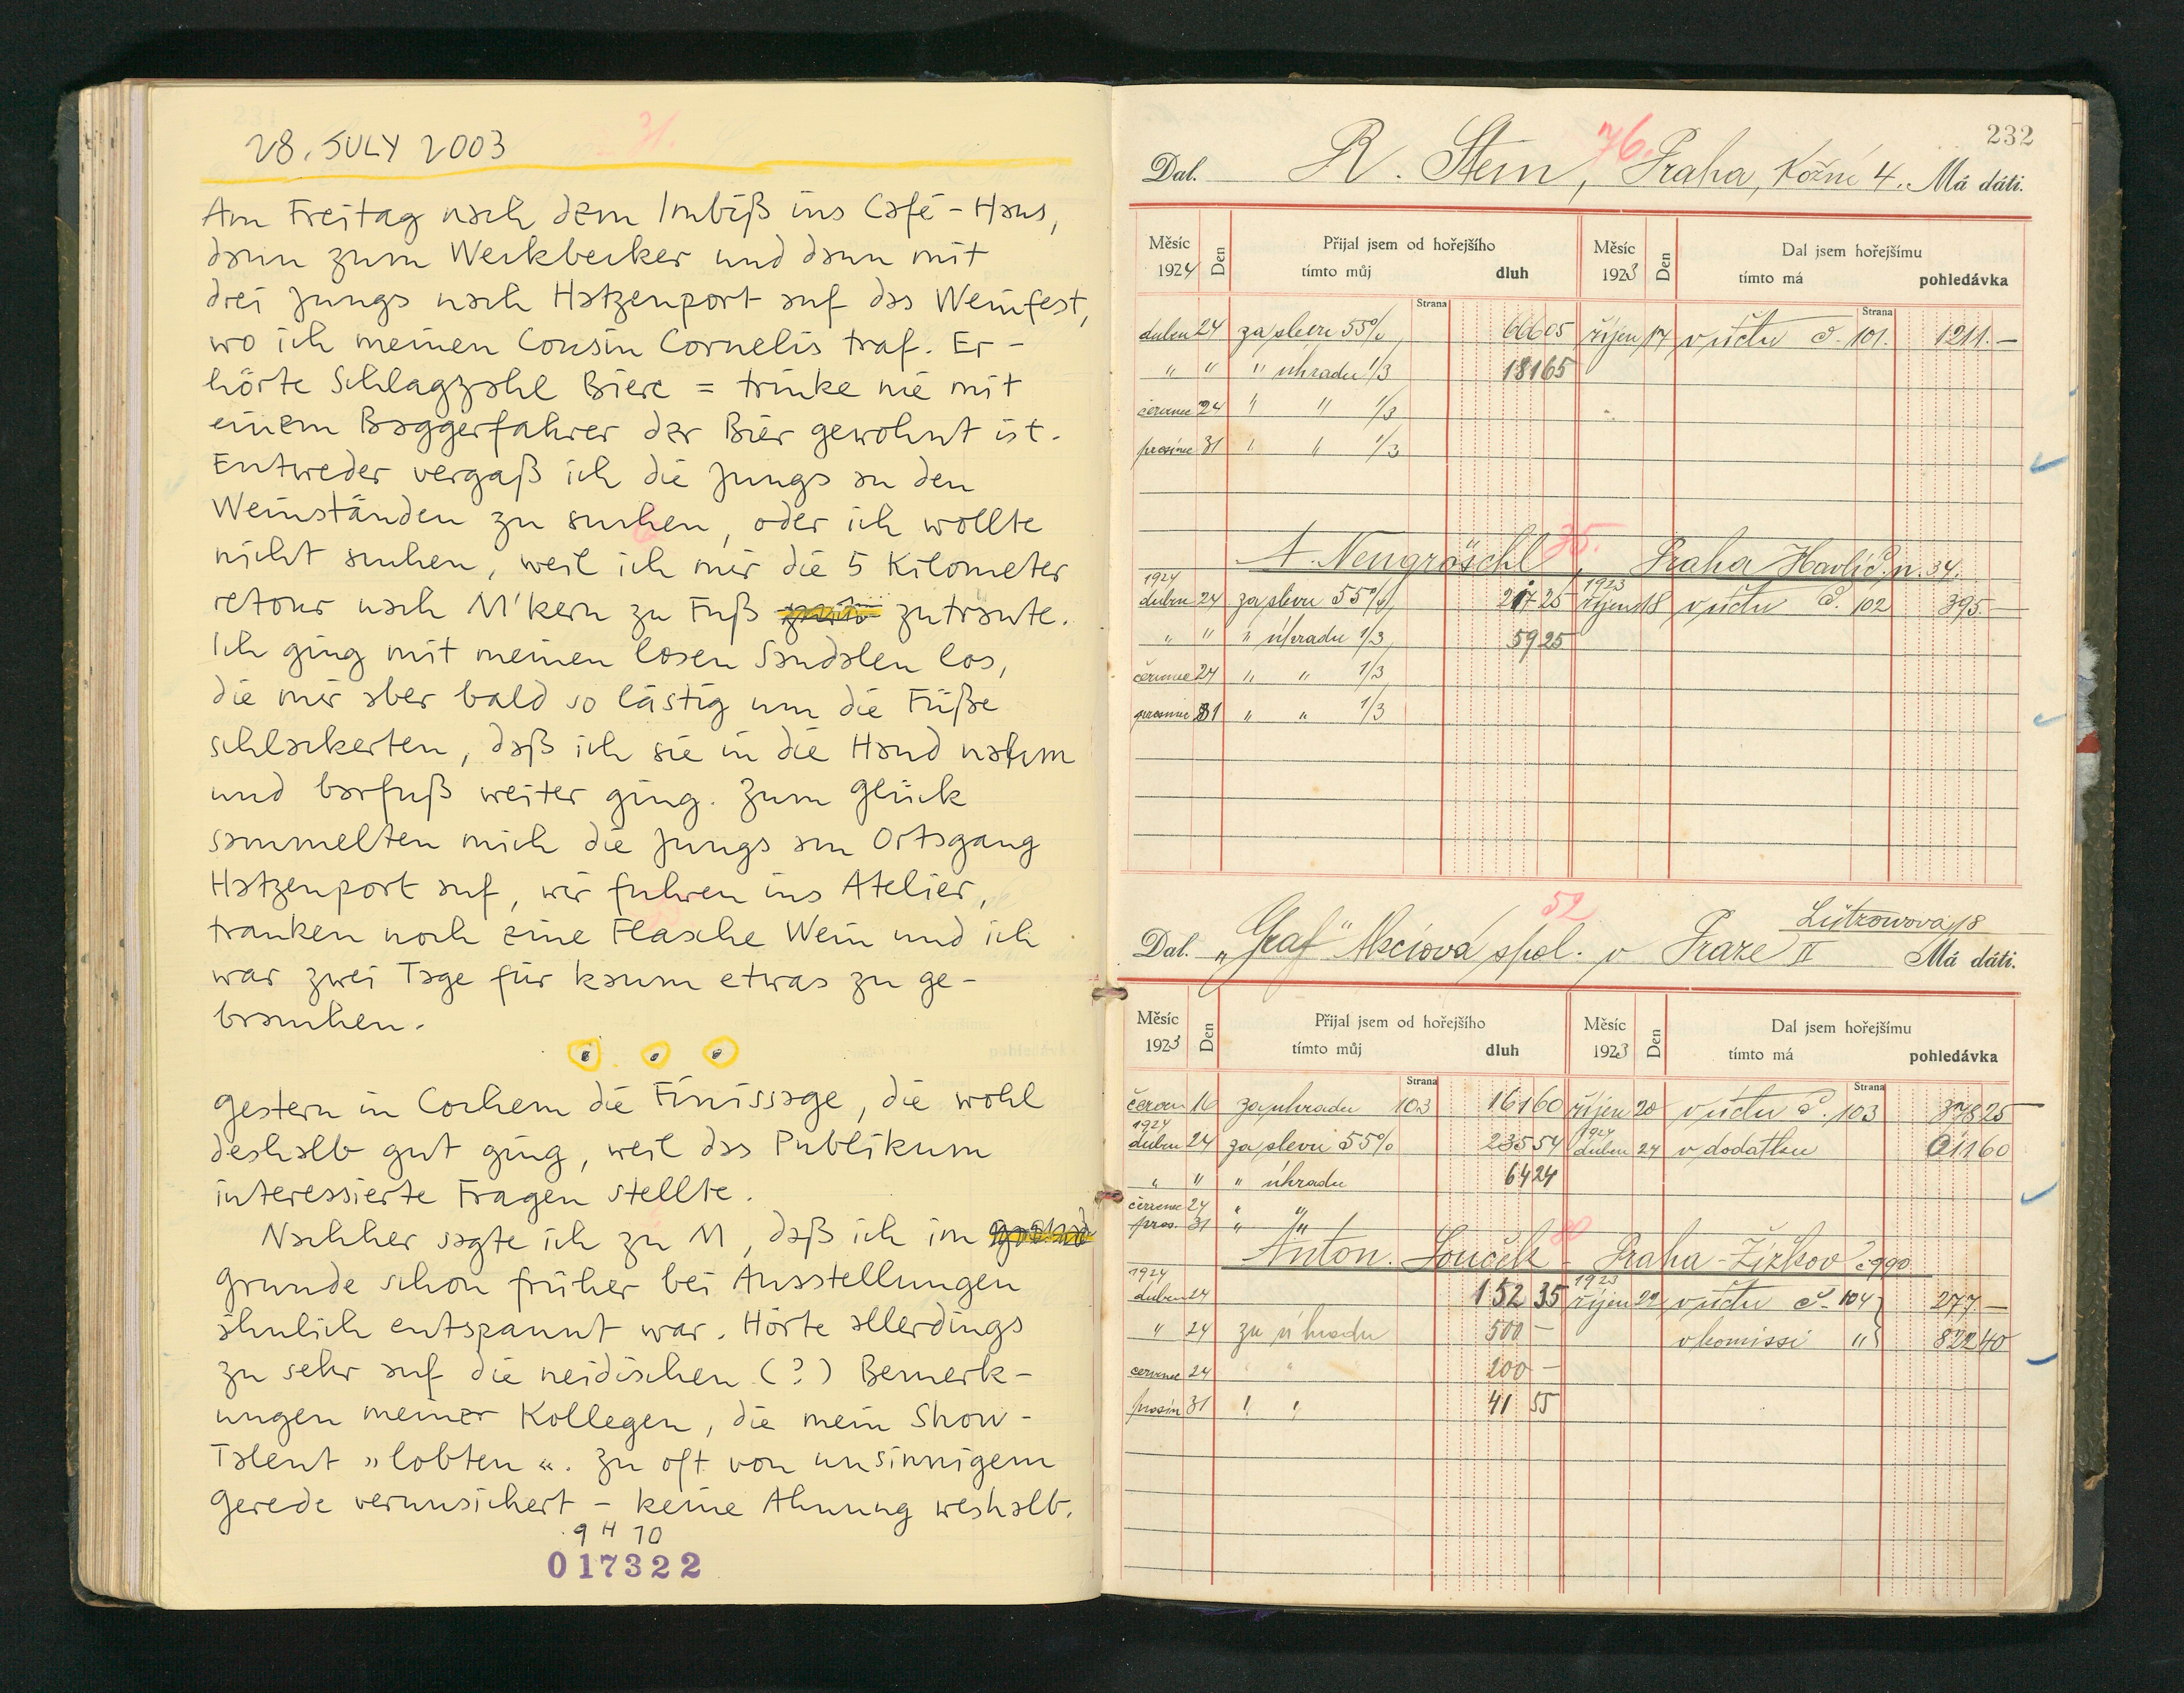 28. JULY 2003
Am Freitag nach dem Imbiß ins Café-Haus,
dann zum Werkbecker und dann mit
drei Jungs nach Hatzenport auf das Weinfest,
wo ich meinen Cousin Cornelis traf. Er-
hörte Schlagzahl Biere = trinke nie mit
einem Baggerfahrer der Bier gewohnt ist.
Entweder vergaß ich die Jungs an den
Weinständen zu suchen, oder ich wollte
nicht suchen, weil ich mir die 5 Kilometer
retour nach M'kern zu Fuß zutraute.
Ich ging mit meinen losen Sandalen los,
die mir aber bald so lästig um die Füße
schlackerten, daß ich sie in die Hand nahm
und barfuß weiter ging. Zum Glück
sammelten mich die Jungs am Ortsgang
Hatzenport auf, wir fuhren ins Atelier,
tranken noch eine Flasche Wein und ich
war zwei Tage für kaum etwas zu ge-
brauchen.
Gestern in Cochem die Finissage, die wohl
deshalb gut ging, weil das Publikum
interessierte Fragen stellte.
Nachher sagte ich zu M, daß ich im
Grunde schon früher bei Ausstellungen
ähnlich entspannt war. Hörte allerdings
zu sehr auf die neidischen (?) Bemerk-
ungen meiner Kollegen, die mein Show-
Talent »lobten«. Zu oft von unsinnigem
Gerede verunsichert – keine Ahnung weshalb.
9 H 10
017322
232
76.
Dal. R. Stein, Praha, Kožné 4. Má dáti.
Měsíc Den Přijal jsem od hořejšího Měsíc Den Dal jsem hořejšímu
1924 tímto můj dluh 1923 tímto má pohledávka
Strana Strana
duben 24 za slevu 55% 66605 říjen 17 v účtu č. 101. 1211.—
" " " úhradu 1/3 18165
červenec 24 " " 1/3
prosinec 31 " " 1/3
35.
A. Neugröschl, Praha Havlíč. n. 34.
1924 1923
duben 24 za slevu 55% 21725 říjen 18 v účtu č. 102 395—
" " " úhradu 1/3 5925
červenec 24 " " 1/3
prosinec 31 " " 1/3
52
Lützowova 18
Dal. „Graf" Akciová spol. v Praze II Má dáti.
Měsíc Den Přijal jsem od hořejšího Měsíc Den Dal jsem hořejšímu
1923 tímto můj dluh 1923 tímto má pohledávka
Strana Strana
červen 16 za úhradu 103 16160 říjen 20 v účtu č. 103 37825
1924 1924
duben 24 za slevu 55% 23554 duben 24 v dodatku 1160
" " " úhradu 6424
červenec 24 " "
pros. 31 " "
Anton. Souček - Praha-Žižkov č 990
1924 1923
duben 24 152 35 říjen 22 v účtu č. 104 277.—
" 24 za úhradu 500— v komissi " 822 40
červenec 24 " " 200—
prosin 31 " " 41 55